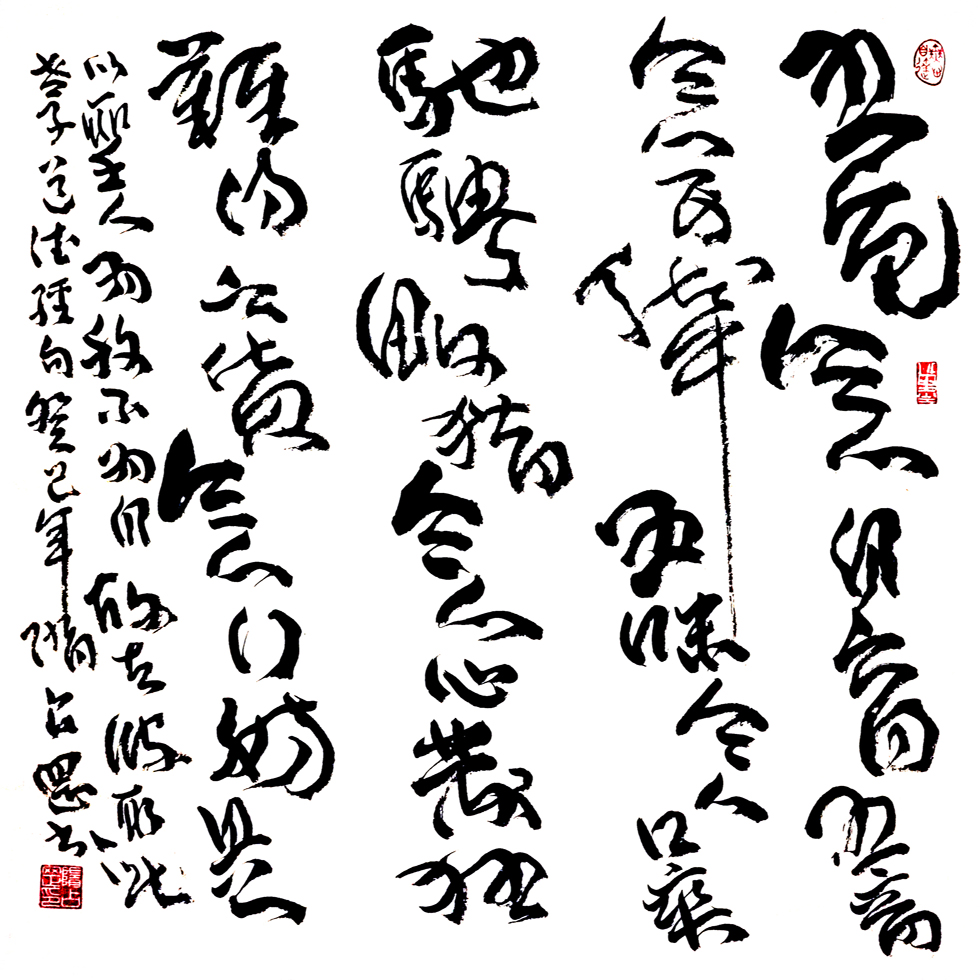 五色令人目盲五音
令人耳聾五味令人口爽
馳騁畋猎令人心發狂
難得之貨令人行妨是
以聖人為腹不為目故去彼取此
老子道德經句癸巳年隋占書